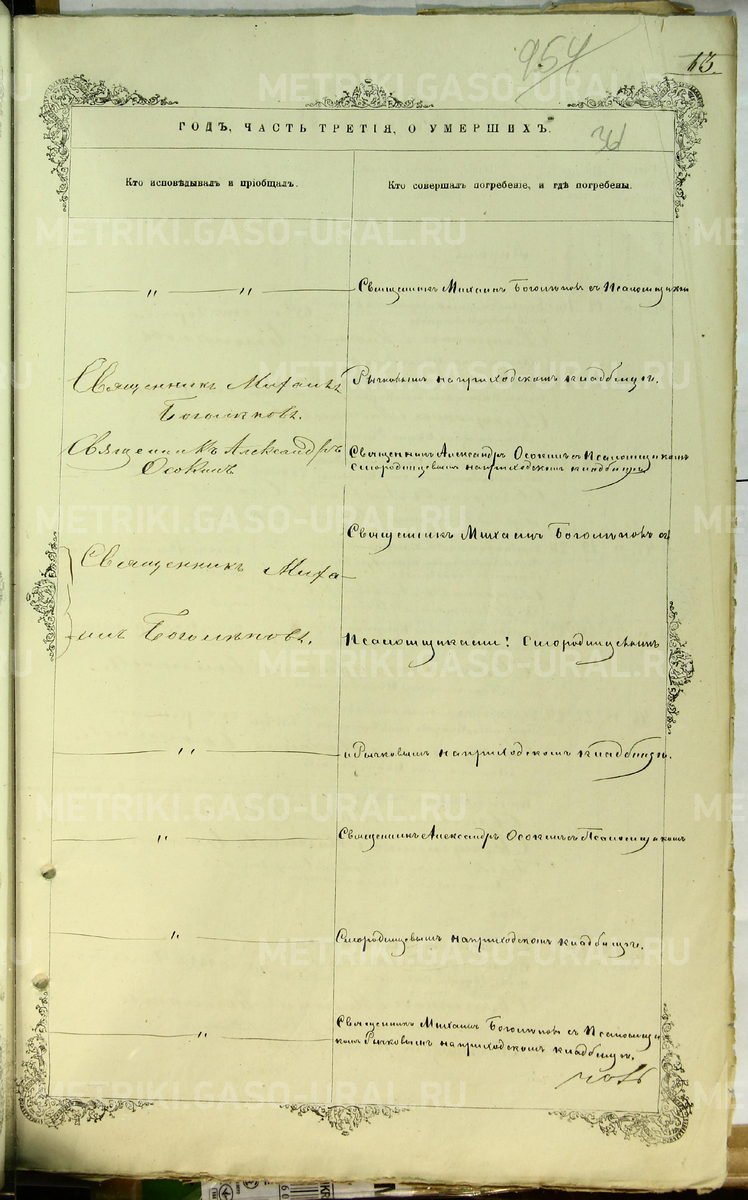 954
13.
ГОДЪ, ЧАСТЬ ТРЕТІЯ, О УМЕРШИХЪ.
Кто исповѣдывалъ и пріобщалъ.
Кто совершалъ погребеніе, и гдѣ погребены.
" "
Священникъ Михаилъ Боголѣповъ съ Псаломщикомъ
Священникъ Михаилъ
Боголѣповъ.
Рычковымъ на приходскомъ кладбищѣ.
Священникъ Александръ
Осокинъ
Священникъ Александръ Осокинъ съ Псаломщикомъ
Смородинцевымъ на приходскомъ кладбищѣ
Священникъ Миха-
илъ Боголѣповъ.
Священникъ Михаилъ Боголѣповъ съ
Псаломщиками: Смородинцевымъ
"
и Рычковымъ на приходскомъ кладбищѣ.
"
Священникъ Александръ Осокинъ съ Псаломщикомъ
"
Смородинцевымъ на приходскомъ кладбищѣ.
"
Священникъ Михаилъ Боголѣповъ съ Псаломщи
комъ Рычковымъ на приходскомъ кладбищѣ.
METRIKI.GASO-URAL.RU